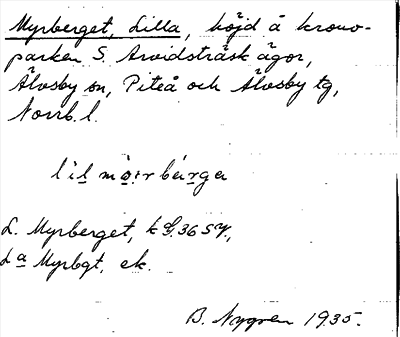 Myrberget, Lilla, höjd å krono-
parken S. Arvidsträsk ägor,
Älvsby sn, Piteå och Älvsby tg,
Norrb. l.
lìl mò̤:r bárga
L. Myrberget, k 36 SV,
La Myrbgt, ek.
B. Nygren 1935.